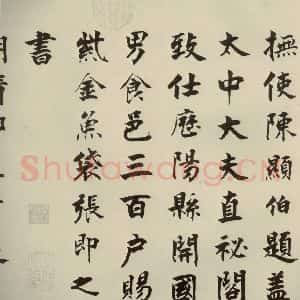 撫使陳顯伯題蓋
太中大夫直祕閣
致仕歷陽縣開國
男食邑三百户賜
紫金魚袋張即之
書
Shufawang.cn